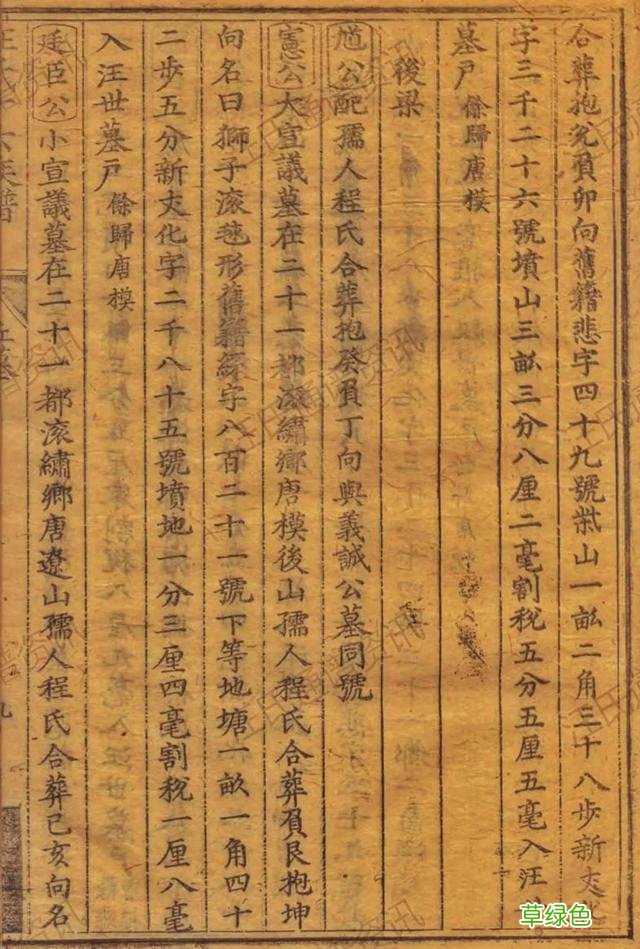 合葬抱兊負卯向舊籍悲字四十九號柴山一畝二角三十八步新丈化
字三千二十六號墳山三畝三分八厘二毫割稅五分五厘五毫入汪
墓戸 餘歸唐模
後梁
馗公配孺人程氏合葬抱癸負丁向與義誠公墓同號
憲公大宣議墓在二十一都滚繡鄉唐模後山孺人程氏合葬負艮抱坤
向名曰獅子滚毬形舊籍絲字八百二十一號下等地塘一畝一角四十
二步五分新丈化字二千八十五號墳地一分三厘四毫割稅一厘八毫
入汪世墓戸 餘歸唐模
廷臣公小宣議墓在二十一都滚繡鄉唐遼山孺人程氏合葬己亥向名
草绿色